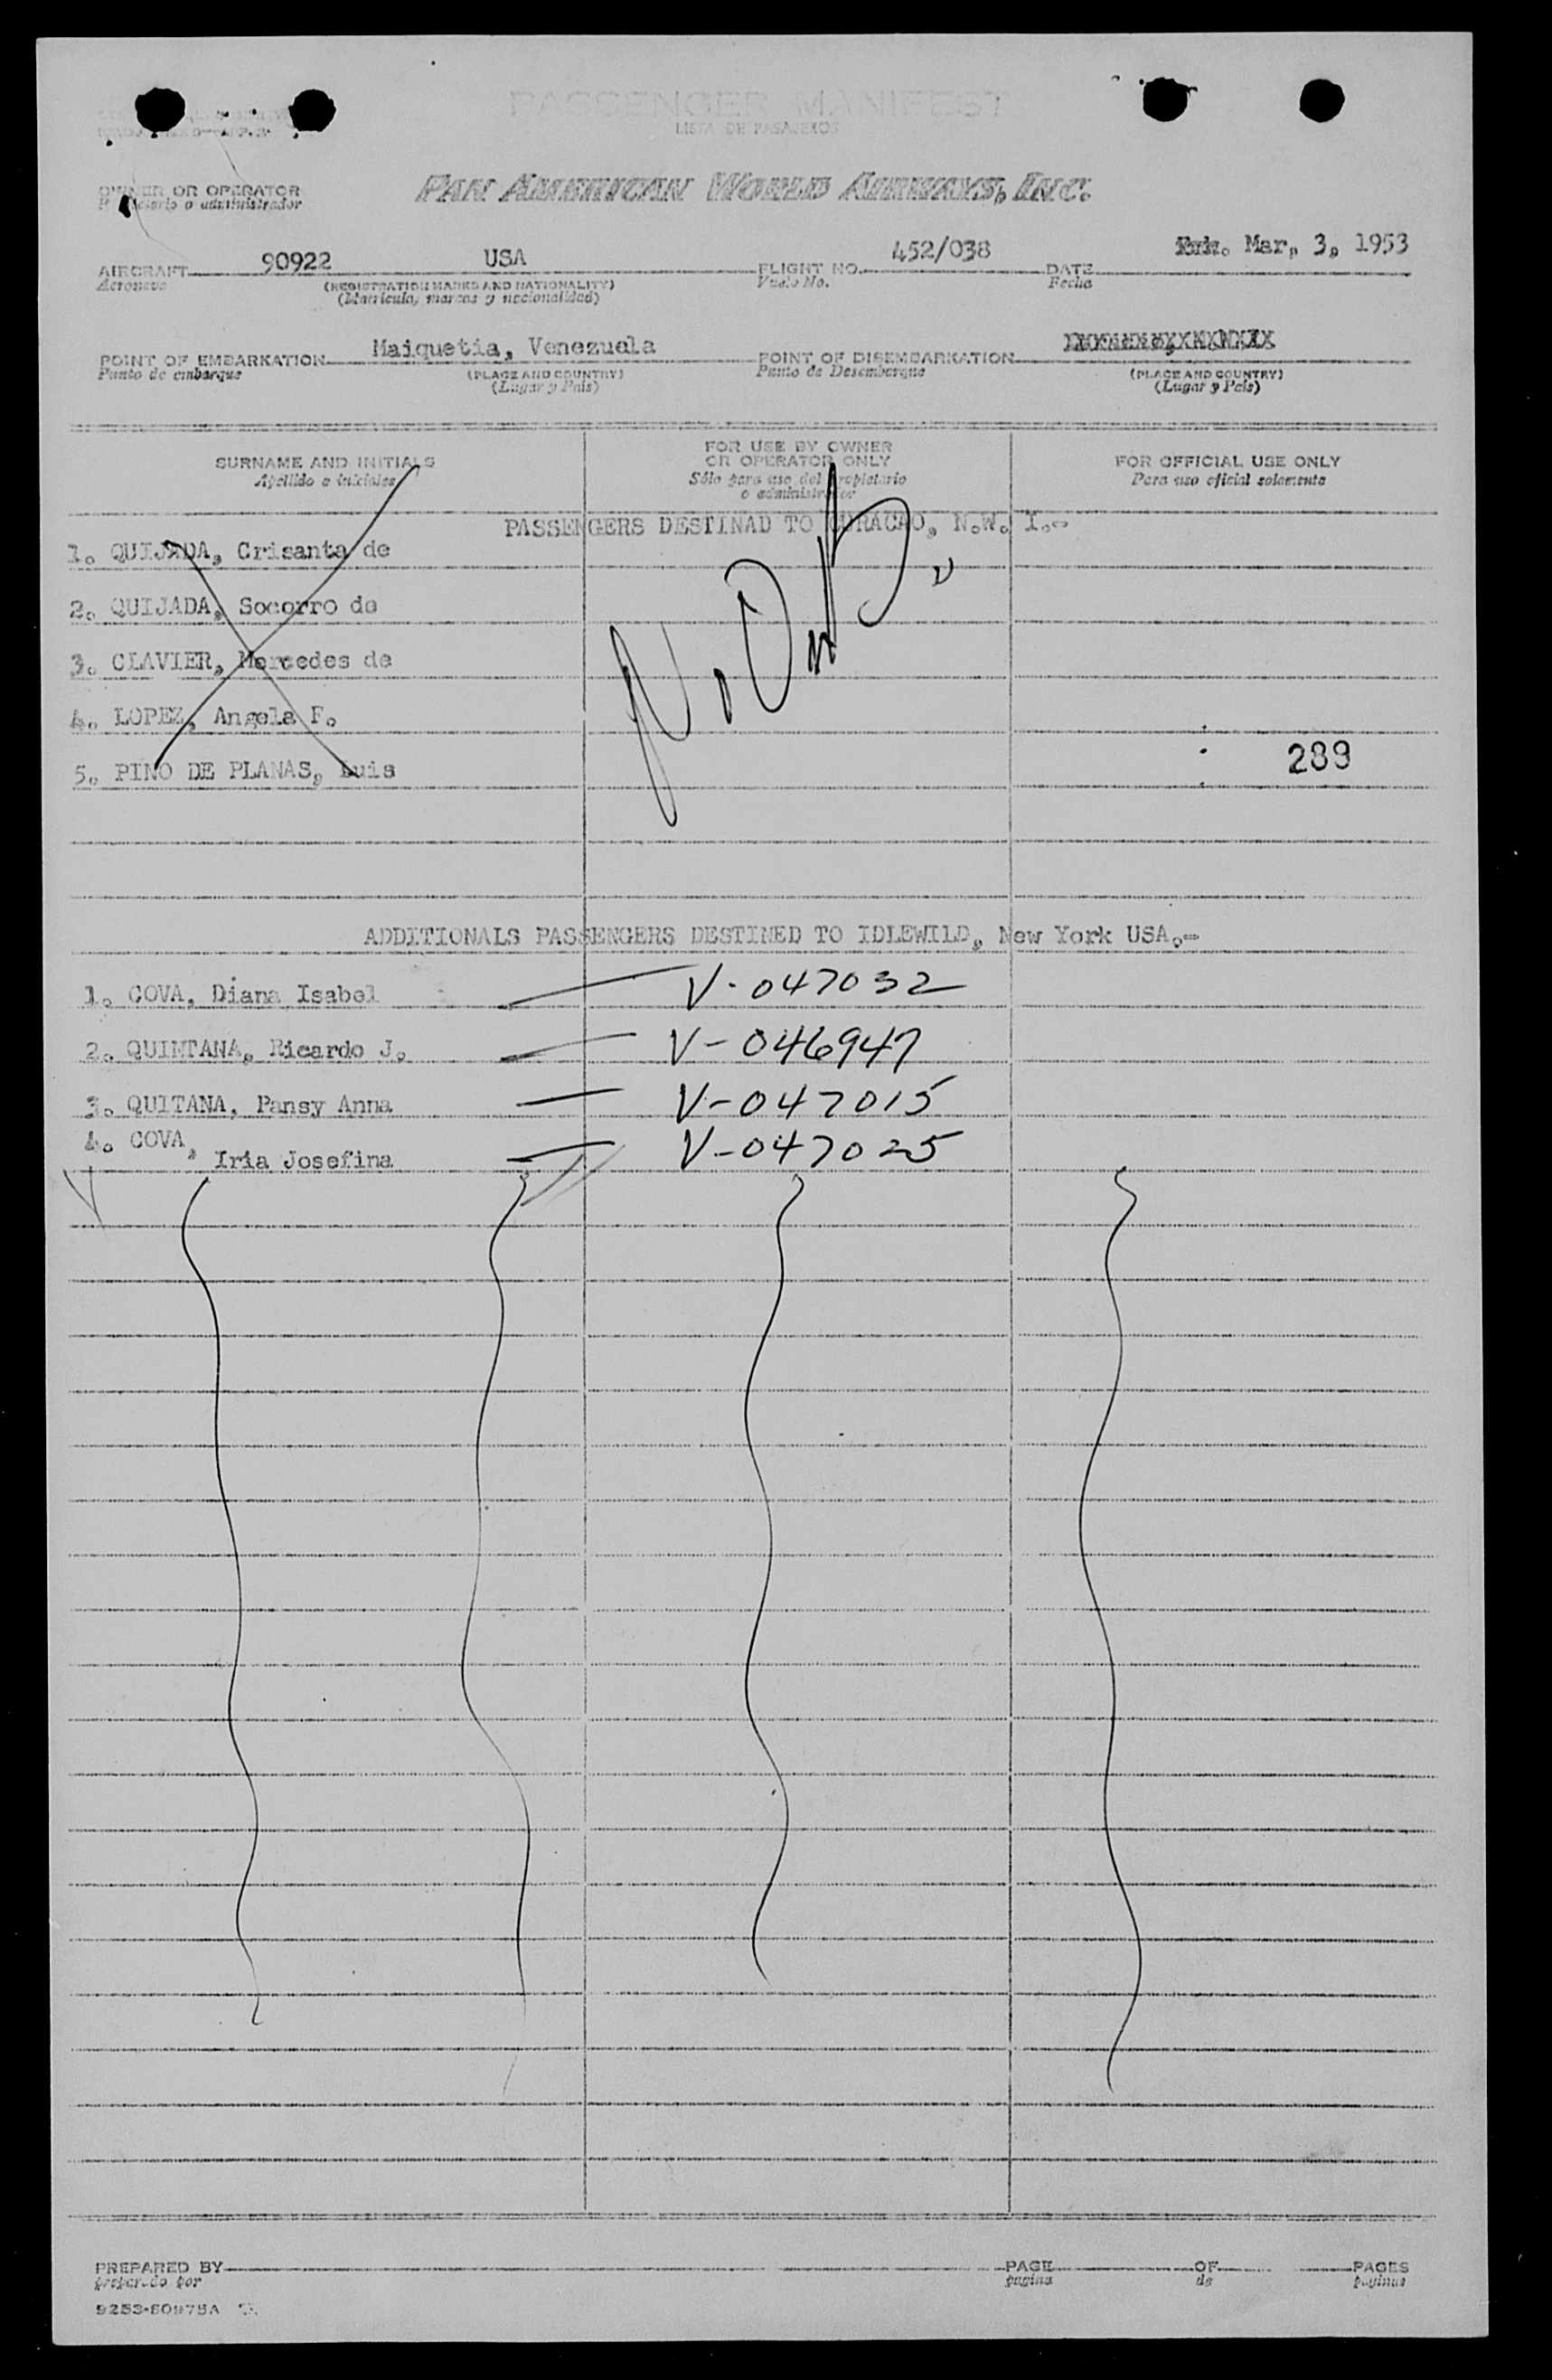 PASSENGER MANIFEST
LISTA DE PASAJEROS
OWNER OR OPERATOR
o administrador
PAN AMERICAN WORLD AIRWAYS, INC.
AIRCRAFT 90922 USA FLIGHT NO. 452/038 DATE Mar, 3, 1953
Aeronave (REGISTRATION MARKS AND NATIONALITY) Vuelo No. Fecha
(Matricula, marcas y nacionalidad)
POINT OF EMBARKATION Maiquetia, Venezuela POINT OF DISEMBARKATION
Punto de embarque (PLACE AND COUNTRY) Punto de Desembarque (PLACE AND COUNTRY)
(Lugar y País) (Lugar y País)
SURNAME AND INITIALS
Apellido e iniciales
FOR USE BY OWNER
OR OPERATOR ONLY
Sólo para uso del propietario
o administrador
FOR OFFICIAL USE ONLY
Para uso oficial solamente
PASSENGERS DESTINAD TO CURACAO, N.W. I.-
1. QUIJADA, Crisanta de
2. QUIJADA, Socorro de
3. CLAVIER, Mercedes de
4. LOPEZ, Angela F.
5. PINO DE PLANAS, Luis
289
ADDITIONALS PASSENGERS DESTINED TO IDLEWILD, New York USA.-
1. COVA, Diana Isabel V-047032
2. QUINTANA, Ricardo J. V-046947
3. QUITANA, Pansy Anna V-047015
4. COVA, Iria Josefina V-047025
PREPARED BY PAGE OF PAGES
preparado por pagina de paginas
9253-60975A